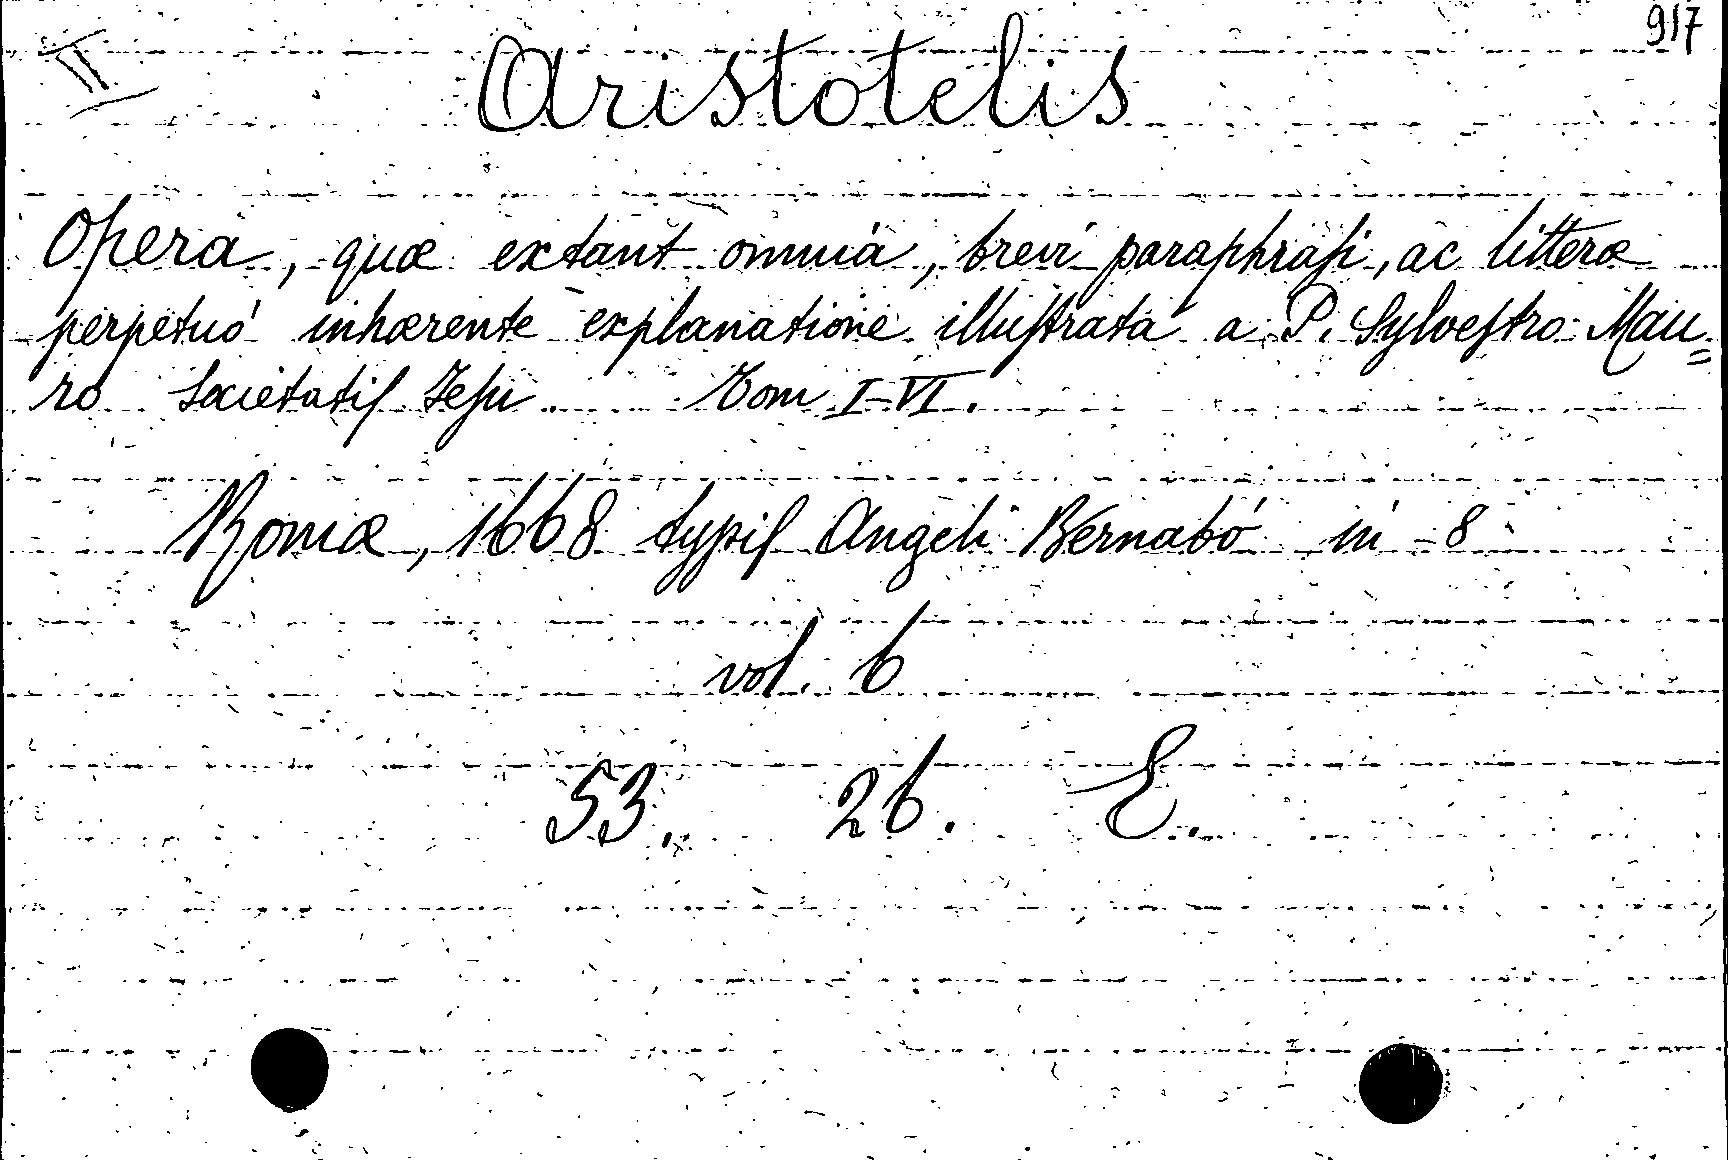 II
917
Aristotelis
Opera, quæ extant omnia, brevi paraphraſi, ac litteræ
perpetuó inhærente explanatione illuſtrata a P. Sylveſtro Mau=
ro Societatiſ Jeſu. Tom I-VI.
Romæ, 1668 typiſ Angeli Bernabó in -8
vol. 6
53. 26. E.